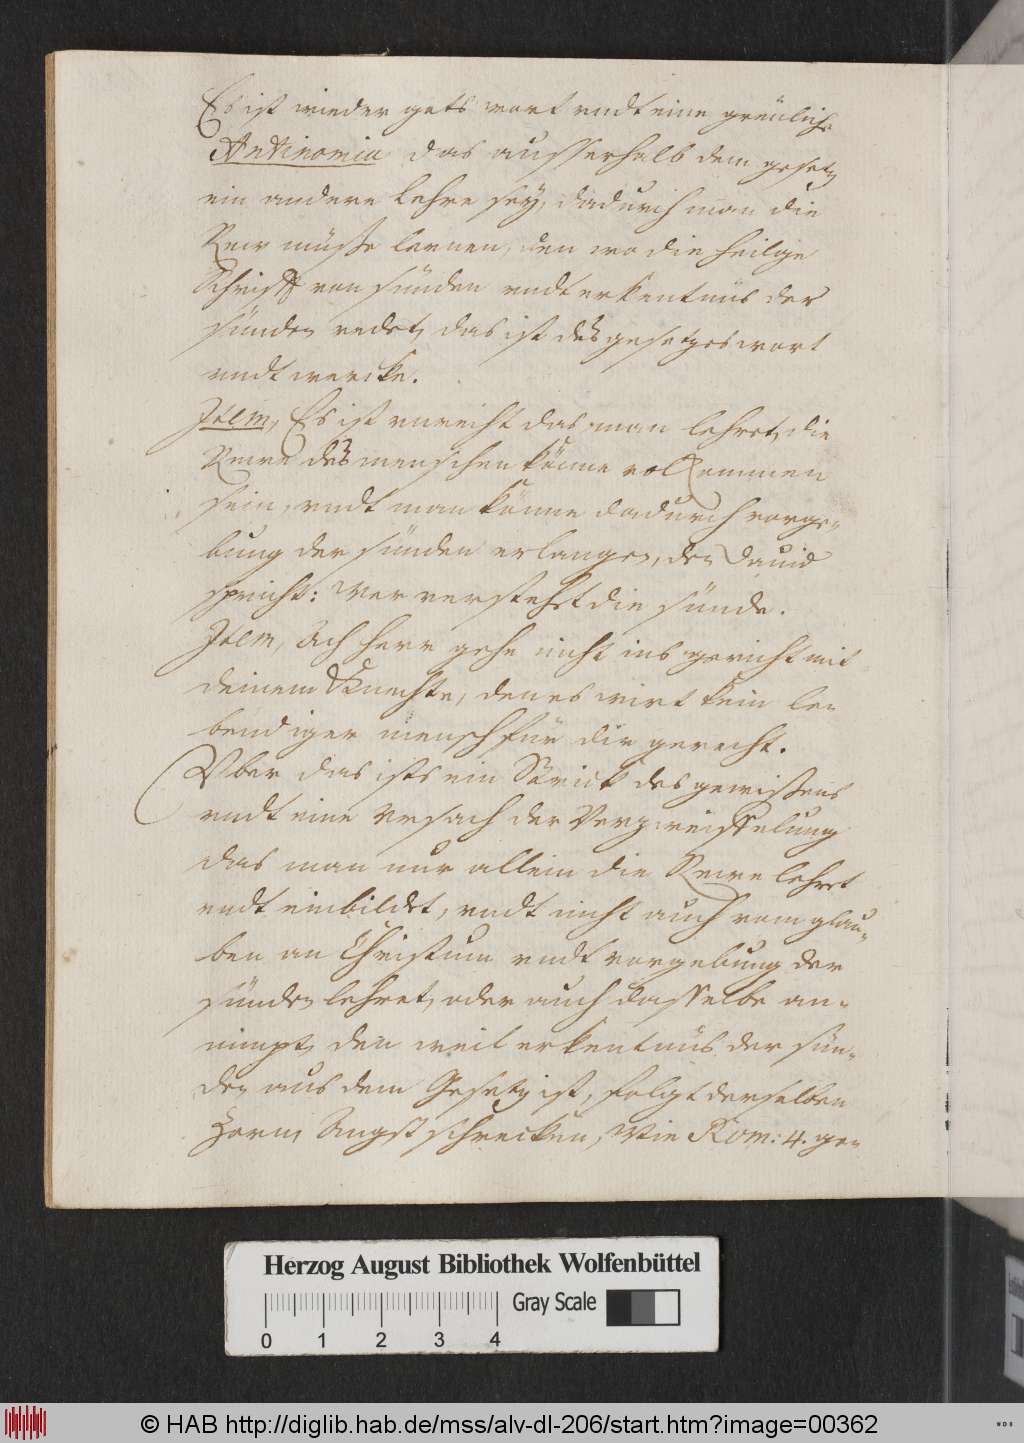 Es ist wieder gots wort undt eine greuliche
Antinomia das ausserhalb dem gesetz
ein andere lehre sey, dadurch man die
Rew müsse lernen, den wo die heilige
Schrifft von sünden undt erkentnüs der
sünden redet, das ist des gesetzes wort
undt wercke.
Item, Es ist unrecht das man lehret, die
Rewe des menschen könne volkommen
sein, undt man könne dadurch verge-
bung der sünden erlangen, den Dauid
spricht: Wer verstehet die sünde.
Item, Ach herr gehe nicht ins gericht mit
deinem Knechte, den es wirt kein le-
bendiger mensch für dir gerecht.
Vber das ists ein Strick des gewißens
undt eine Vrsach der Verzweiffelung
das man nur allein die Rewe lehret
undt einbildet, undt nicht auch vom glau-
ben an Christum undt vergebung der
sünden lehret, oder auch dasselbe an-
nimpt, den weil erkentnüs der sün-
den aus dem Gesetz ist, folgt derselben
Zorn, Angst schrecken, Wie Rom: 4. ge-
Herzog August Bibliothek Wolfenbüttel
Gray Scale
0 1 2 3 4
© HAB http://diglib.hab.de/mss/alv-dl-206/start.htm?image=00362